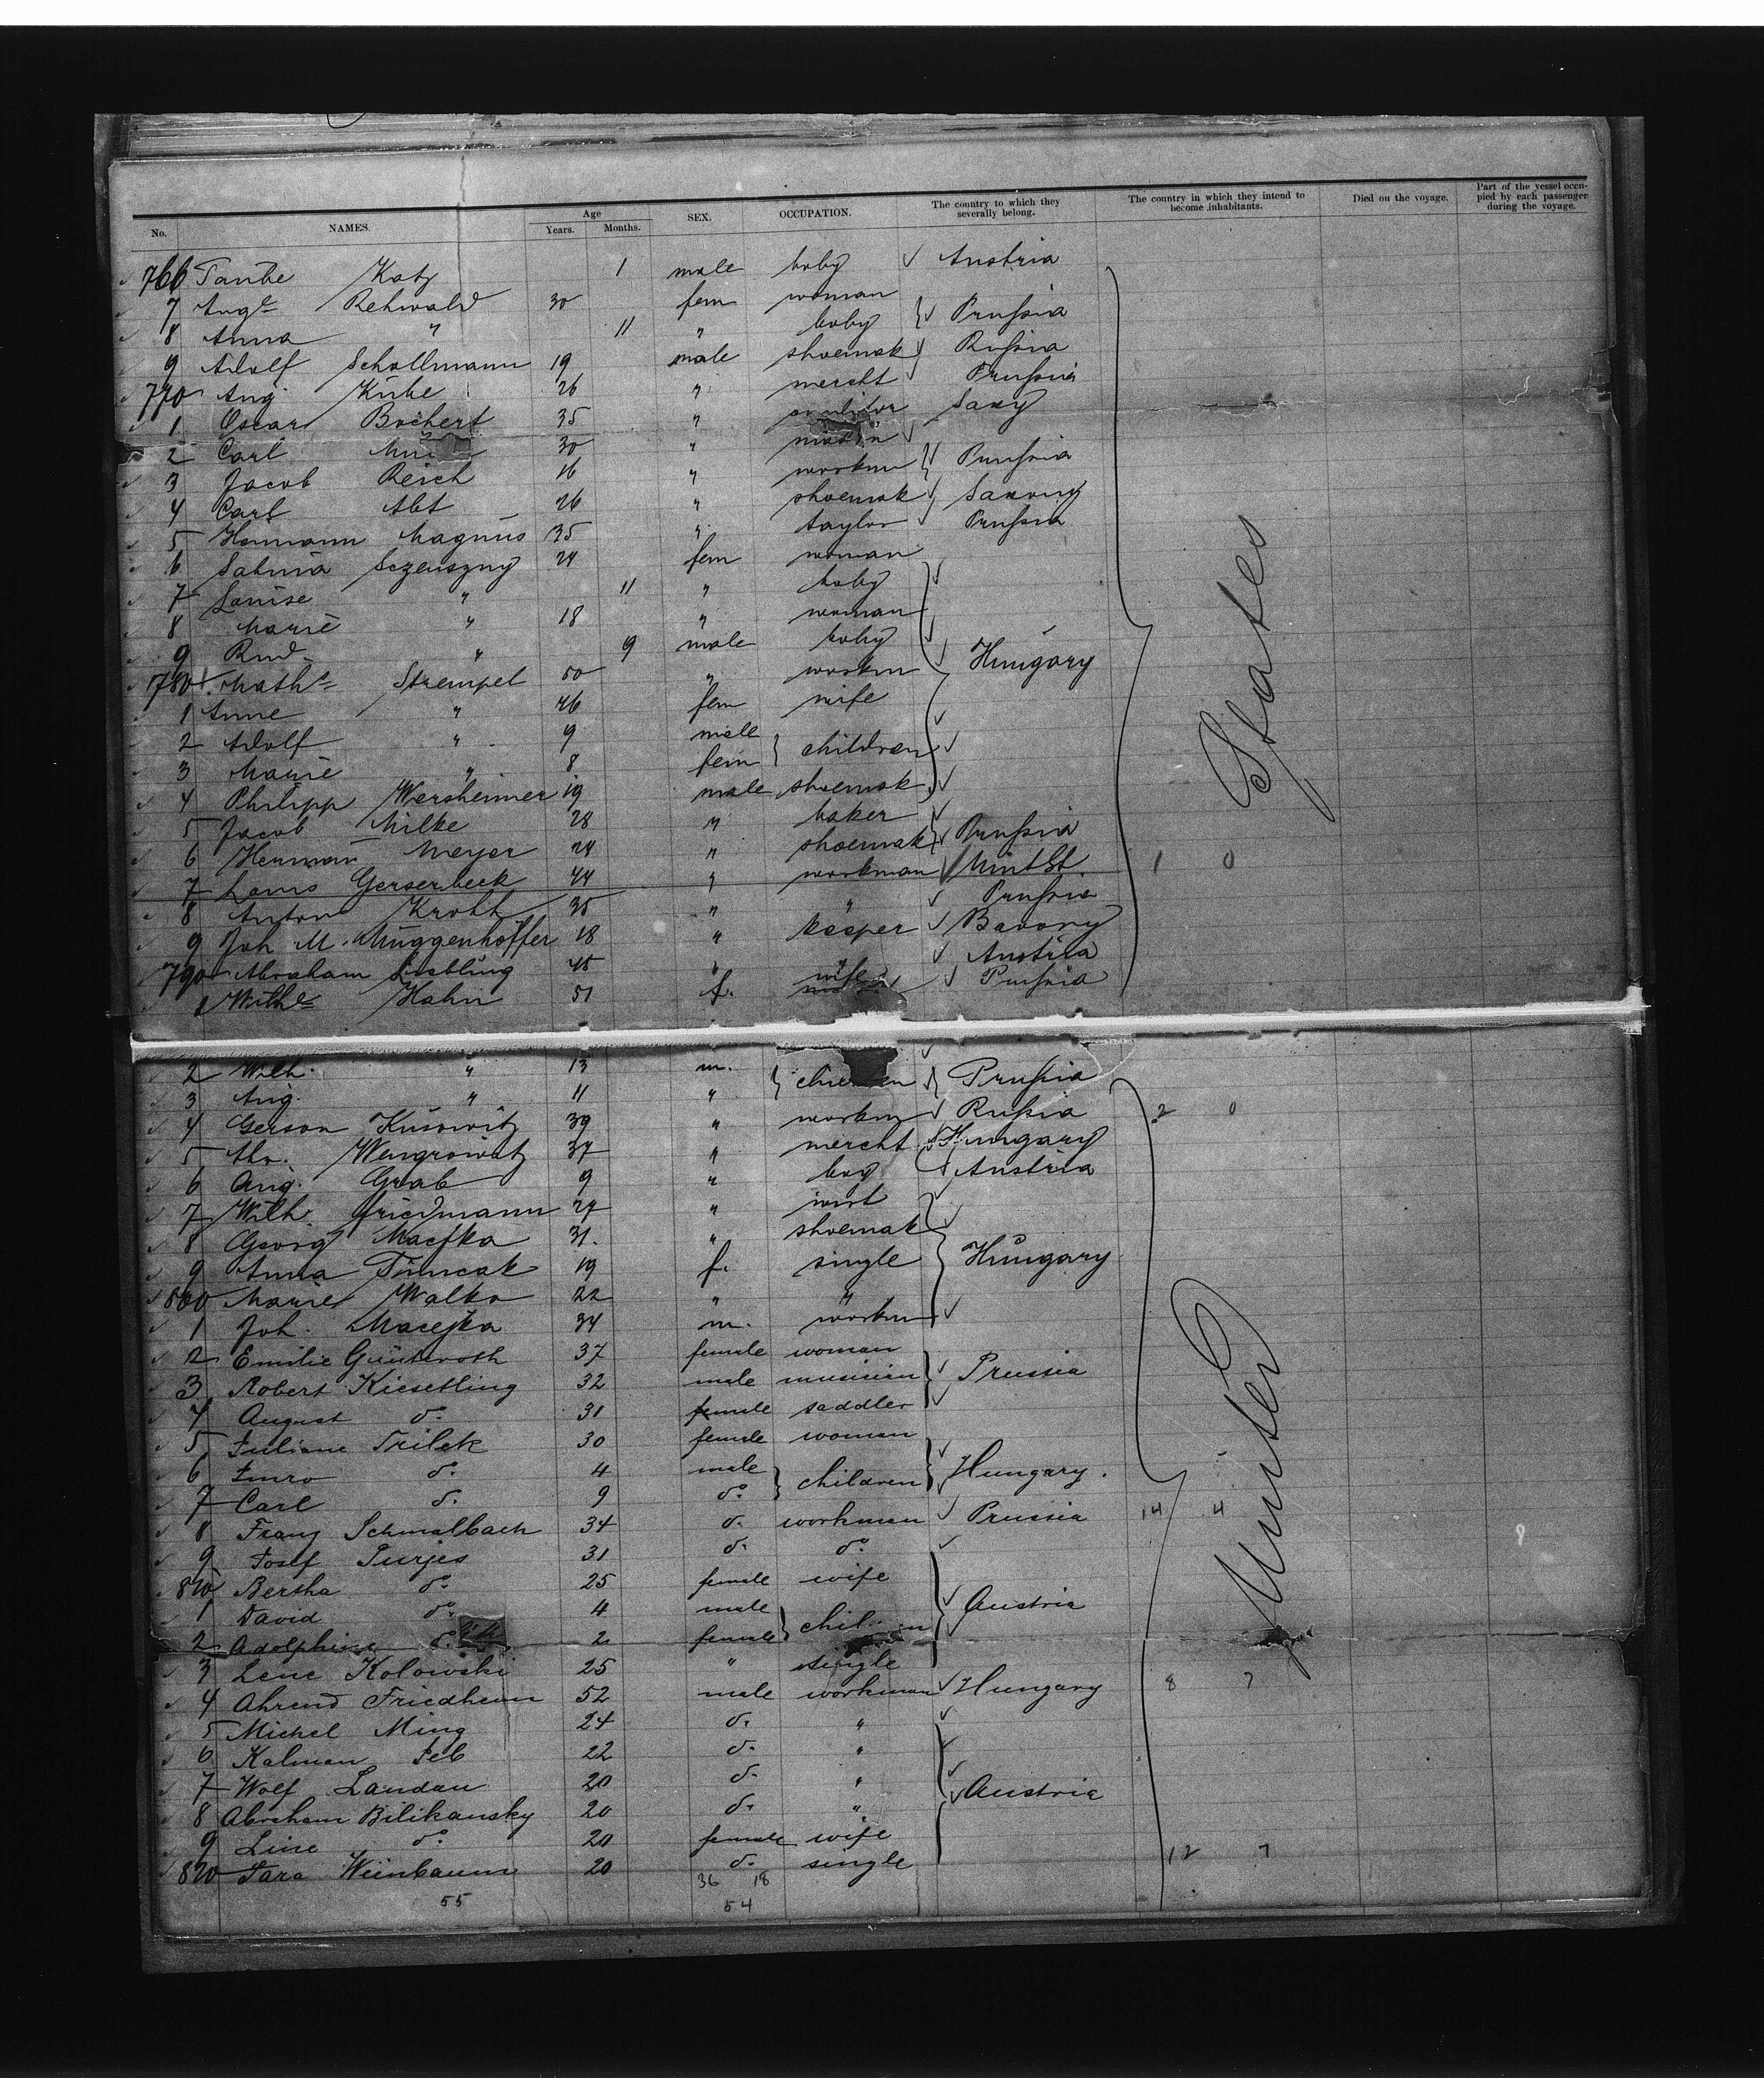 No. NAMES. Age Years. Months. SEX. OCCUPATION. The country to which they severally belong. The country in which they intend to become inhabitants. Died on the voyage. Part of the vessel occupied by each passenger during the voyage.
766 Taube Katz 1 male baby Austria
7 Augte Rehwald 30 fem woman
8 Anna " 11 " baby Prussia
9 Adolf Schollmann 19 male shoemak Russia
770 Aug Kube 26 " mercht Prussia
1 Oscar Bochert 35 " Saxy
2 Carl 30 "
3 Jacob Reich 16 " workm Prussia
4 Carl Abt 26 " shoemak Saxony
5 Hermann Magnus 35 " taylor Prussia
6 Salina Sczenszny 24 fem woman
7 Louise " 11 " baby
8 Marie " 18 " woman
9 Rud " 9 male baby
780 Math Strempel 50 " workm Hungary
1 Anne " 46 fem wife
2 Adolf " 9 male children
3 Marie " 8 fem
4 Philipp Wersheimer 19 male shoemak
5 Jacob Milke 28 " baker
6 Herman Meyer 24 " shoemak Prussia
7 Louis Gerserbeck 44 " workman Unit St.
8 Anton Kroll 35 " " Prussia
9 Joh. M. Muggenhoffer 18 " keeper Bavony
790 Abraham 45 " " Austria
1 Wilhe Hahn 51 f. wife Prussia
States
1 0
2 Wilh. " 13 m. children Prussia
3 Aug. " 11 "
4 Gerson Kusowitz 39 " workm Russia 2 0
5 Ab. Wengrowitz 37 " mercht Hungary
6 Aug. Grab 9 " boy Austria
7 Wilh. Friedmann 27 " wirt
8 Georg Macfka 31. " shoemak
9 Anna Timcak 19 f. single Hungary
800 Marie Walko 22 " "
1 Joh. Macejka 34 m. workm
2 Emilie Günteroth 37 female woman
3 Robert Kiesetling 32 male musician Prussia
4 August do. 31 female saddler
5 Juliane Trilek 30 female woman
6 Imro do. 4 male children Hungary.
7 Carl do. 9 do.
8 Franz Schmalbach 34 do. workman Prussia 14 4
9 Josef Purjes 31 do. do.
810 Bertha do. 25 female wife
1 David do. 4 male Austria
2 Adolphine do. 2 female
3 Lene Kolowski 25 " single
4 Ahrend Friedheim 52 male workman Hungary 8 7
5 Michel Ming 24 do. "
6 Kalman Feb 22 do. "
7 Wolf Landau 20 do. " Austria
8 Abraham Bilikansky 20 do. "
9 Line do. 20 female wife
820 Sara Weinbaum 20 do. single 12 7
United
36 18
55 54